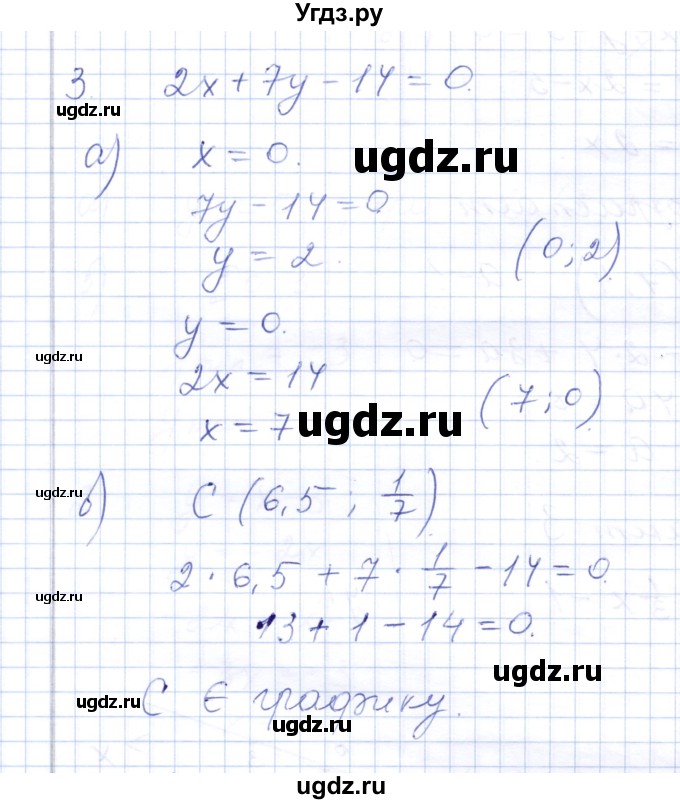 Угдз.ру
3. 2x + 7y - 14 = 0.
а) x = 0.
ugdz.ru
ugdz.ru
7y - 14 = 0
ugdz.ru
y = 2.
(0; 2)
y = 0.
ugdz.ru
2x = 14
x = 7
ugdz.ru
(7; 0)
ugdz.ru
б) C (6,5; 1/7).
2 · 6,5 + 7 · 1/7 - 14 = 0.
ugdz.ru
13 + 1 - 14 = 0.
ugdz.ru
ugdz.ru
C ∈ графику.
ugdz.ru
ugdz.ru